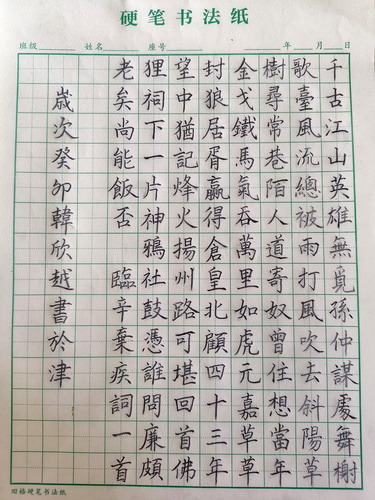 硬笔书法纸
班级 姓名 座号 年 月 日
千古江山英雄無覓孫仲謀處舞榭
歌臺風流總被雨打風吹去斜陽草
樹尋常巷陌人道寄奴曾住想當年
金戈鐵馬氣吞萬里如虎元嘉草草
封狼居胥贏得倉皇北顧四十三年
望中猶記烽火揚州路可堪回首佛
狸祠下一片神鴉社鼓憑誰問廉頗
老矣尚能飯否 臨辛棄疾詞一首
歳次癸卯韓欣越書於津
田格硬笔书法纸